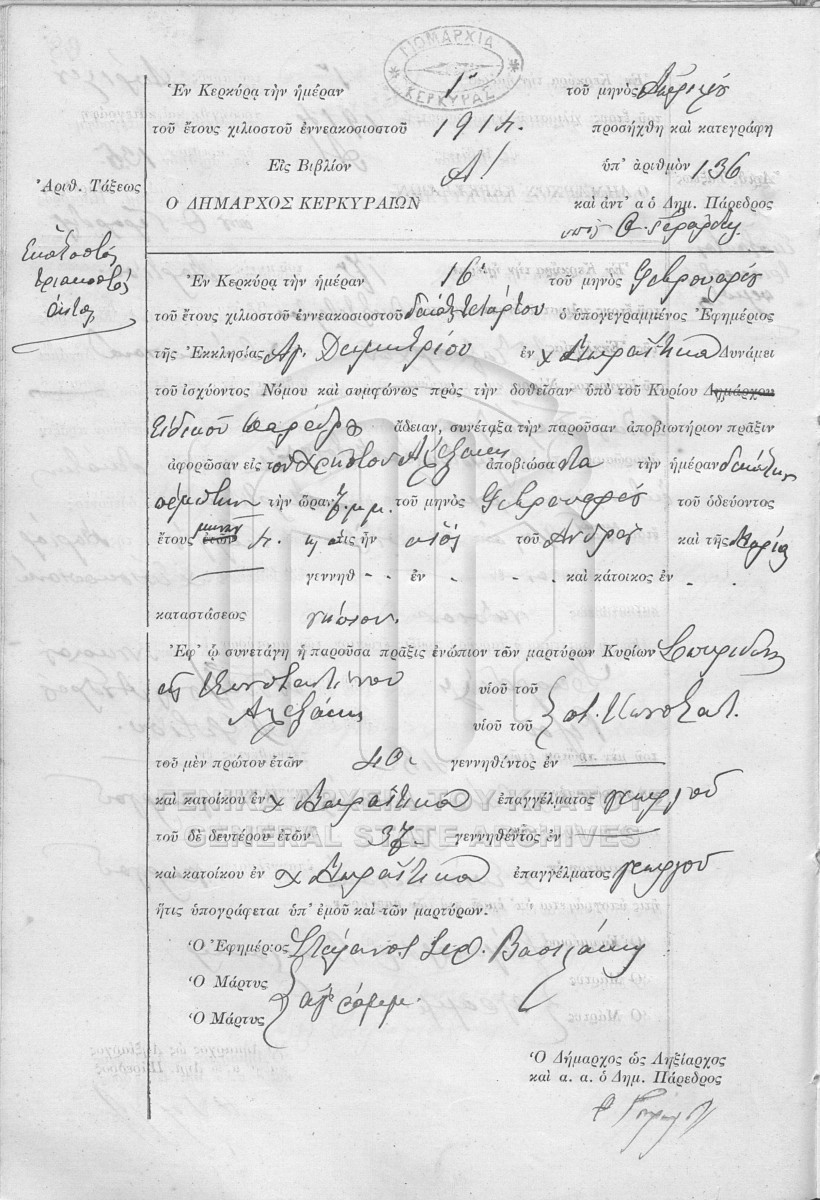 ΔΗΜΑΡΧΙΑ
ΚΕΡΚΥΡΑΣ
Ἐν Κερκύρᾳ τὴν ἡμέραν 1ην τοῦ μηνὸς Ἀπριλίου
τοῦ ἔτους χιλιοστοῦ ἐννεακοσιοστοῦ 1914. προσήχθη καὶ κατεγράφη
Εἰς Βιβλίον Α! ὑπ' ἀριθμὸν 136
Ἀριθ. Τάξεως
Ο ΔΗΜΑΡΧΟΣ ΚΕΡΚΥΡΑΙΩΝ καὶ ἀντ' α ὁ Δημ. Πάρεδρος
Ἑκατοστὸς
τριακοστὸς
ἕκτος
Ἐν Κερκύρᾳ τὴν ἡμέραν 16 τοῦ μηνὸς Φεβρουαρίου
τοῦ ἔτους χιλιοστοῦ ἐννεακοσιοστοῦ δεκάτου τετάρτου ὁ ὑπογεγραμμένος Ἐφημέριος
τῆς Ἐκκλησίας Ἁγ. Δημητρίου ἐν χ Δυνάμει
τοῦ ἰσχύοντος Νόμου καὶ συμφώνως πρὸς τὴν δοθεῖσαν ὑπὸ τοῦ Κυρίου Δημάρχου
Εἰδικοῦ Παρέδρου ἄδειαν, συνέταξα τὴν παροῦσαν ἀποβιωτήριον πρᾶξιν
ἀφορῶσαν εἰς τὸν Χρῆστον ἀποβιώσαντα τὴν ἡμέραν δεκάτην
πέμπτην τὴν ὥραν 7 μ.μ. τοῦ μηνὸς Φεβρουαρίου τοῦ ὁδεύοντος
ἔτους ἐτῶν μηνῶν 4. ἥτις ἦν υἱὸς τοῦ Ἀνδρέου καὶ τῆς Μαρίας
γεννηθ - - ἐν - - - καὶ κάτοικος ἐν - -
καταστάσεως νήπιον.
Ἐφ' ᾧ συνετάγη ἡ παροῦσα πρᾶξις ἐνώπιον τῶν μαρτύρων Κυρίων Σπυρίδων
Κωνσταντίνου υἱοῦ τοῦ
υἱοῦ τοῦ Κωνσταντ.
τοῦ μὲν πρώτου ἐτῶν 40. γεννηθέντος ἐν
καὶ κατοίκου ἐν χ ἐπαγγέλματος γεωργοῦ
ΓΕΝΙΚΑ ΑΡΧΕΙΑ ΤΟΥ ΚΡΑΤΟΥΣ
GENERAL STATE ARCHIVES
τοῦ δὲ δευτέρου ἐτῶν 37. γεννηθέντος ἐν
καὶ κατοίκου ἐν χ ἐπαγγέλματος γεωργοῦ
ἥτις ὑπογράφεται ὑπ' ἐμοῦ καὶ τῶν μαρτύρων.
Ὁ Ἐφημέριος Στέφανος Ἱερ. Βασιλάκης
Ὁ Μάρτυς
Ὁ Μάρτυς ἀγράμμ.
Ὁ Δήμαρχος ὡς Ληξίαρχος
καὶ α. α. ὁ Δημ. Πάρεδρος